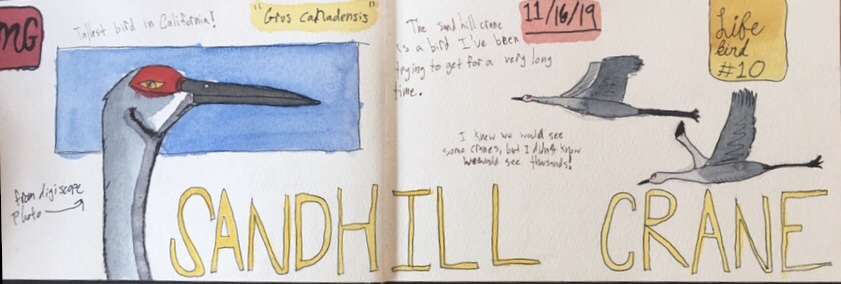 MG
Tallest bird in California!
"Grus canadensis"
The sand hill crane
is a bird I've been
trying to get for a very long
time.
11/16/19
Life
bird
#10
I knew we would see
some cranes, but I didn't know
we would see thousands!
from digiscope
photo
SANDHILL CRANE